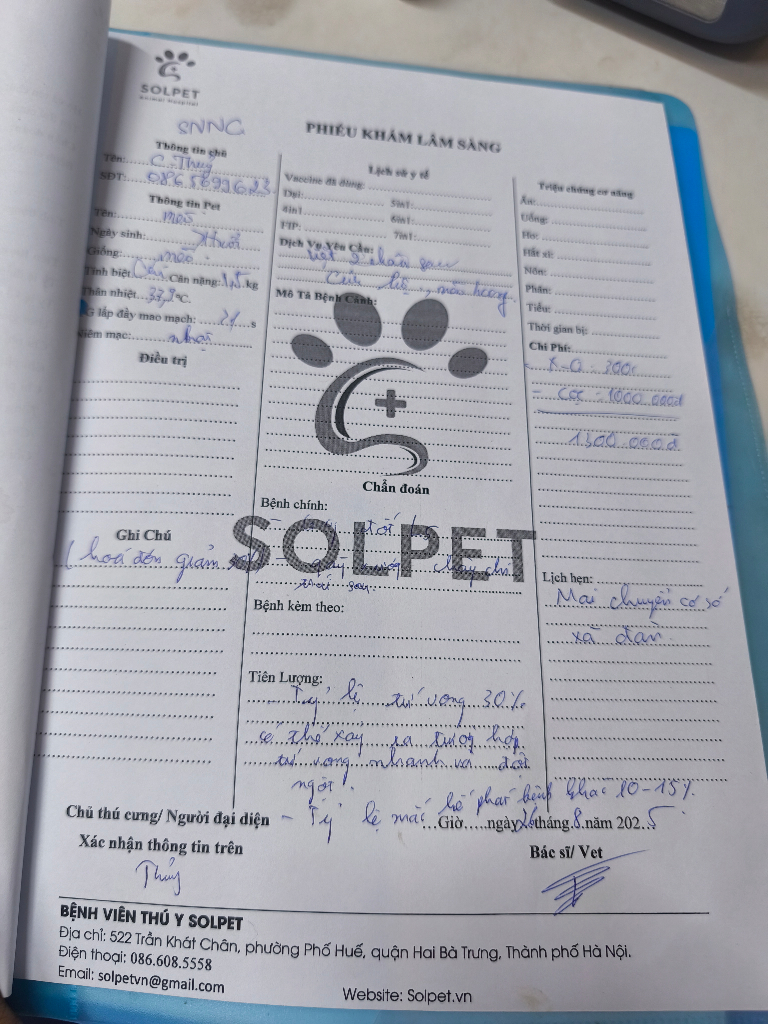 SOLPET
Animal Hospital
SNNC
PHIẾU KHÁM LÂM SÀNG
Thông tin chủ
Tên: C. Thuỷ
SĐT: 0865699623
Thông tin Pet
Tên: mèo
Ngày sinh:
Giống: mèo
Tính biệt: Cái Cân nặng: 1,5 kg
Thân nhiệt 37,9 °C.
G lấp đầy mao mạch: s
Niêm mạc: nhạt
Điều trị
Ghi Chú
hoá đơn giảm
Lịch sử y tế
Vaccine đã dùng:
Dại: 5in1:
4in1: 6in1:
FIP: 7in1:
Dịch Vụ Yêu Cầu:
liệt 2 chân sau
Cứu hộ, mèo hoang
Mô Tả Bệnh Cảnh:
Chẩn đoán
Bệnh chính:
SOLPET
Bệnh kèm theo:
Tiên Lượng:
Tỷ lệ tử vong 30%
có thể xảy ra trường hợp
tử vong nhanh và đột
ngột.
- Tỷ lệ mắc kế phát bệnh khác 10-15%.
Triệu chứng cơ năng
Ăn:
Uống:
Ho:
Hắt xì:
Nôn:
Phân:
Tiểu:
Thời gian bị:
Chi Phí:
- X-Q: 300k
- cọc: 1000.000đ
1300.000đ
Lịch hẹn:
Mai chuyển cơ sở
xã đàn
Chủ thú cưng/ Người đại diện
Xác nhận thông tin trên
Thủy
Giờ ngày 26 tháng 8 năm 2025
Bác sĩ/ Vet
BỆNH VIỆN THÚ Y SOLPET
Địa chỉ: 522 Trần Khát Chân, phường Phố Huế, quận Hai Bà Trưng, Thành phố Hà Nội.
Điện thoại: 086.608.5558
Email: solpetvn@gmail.com
Website: Solpet.vn